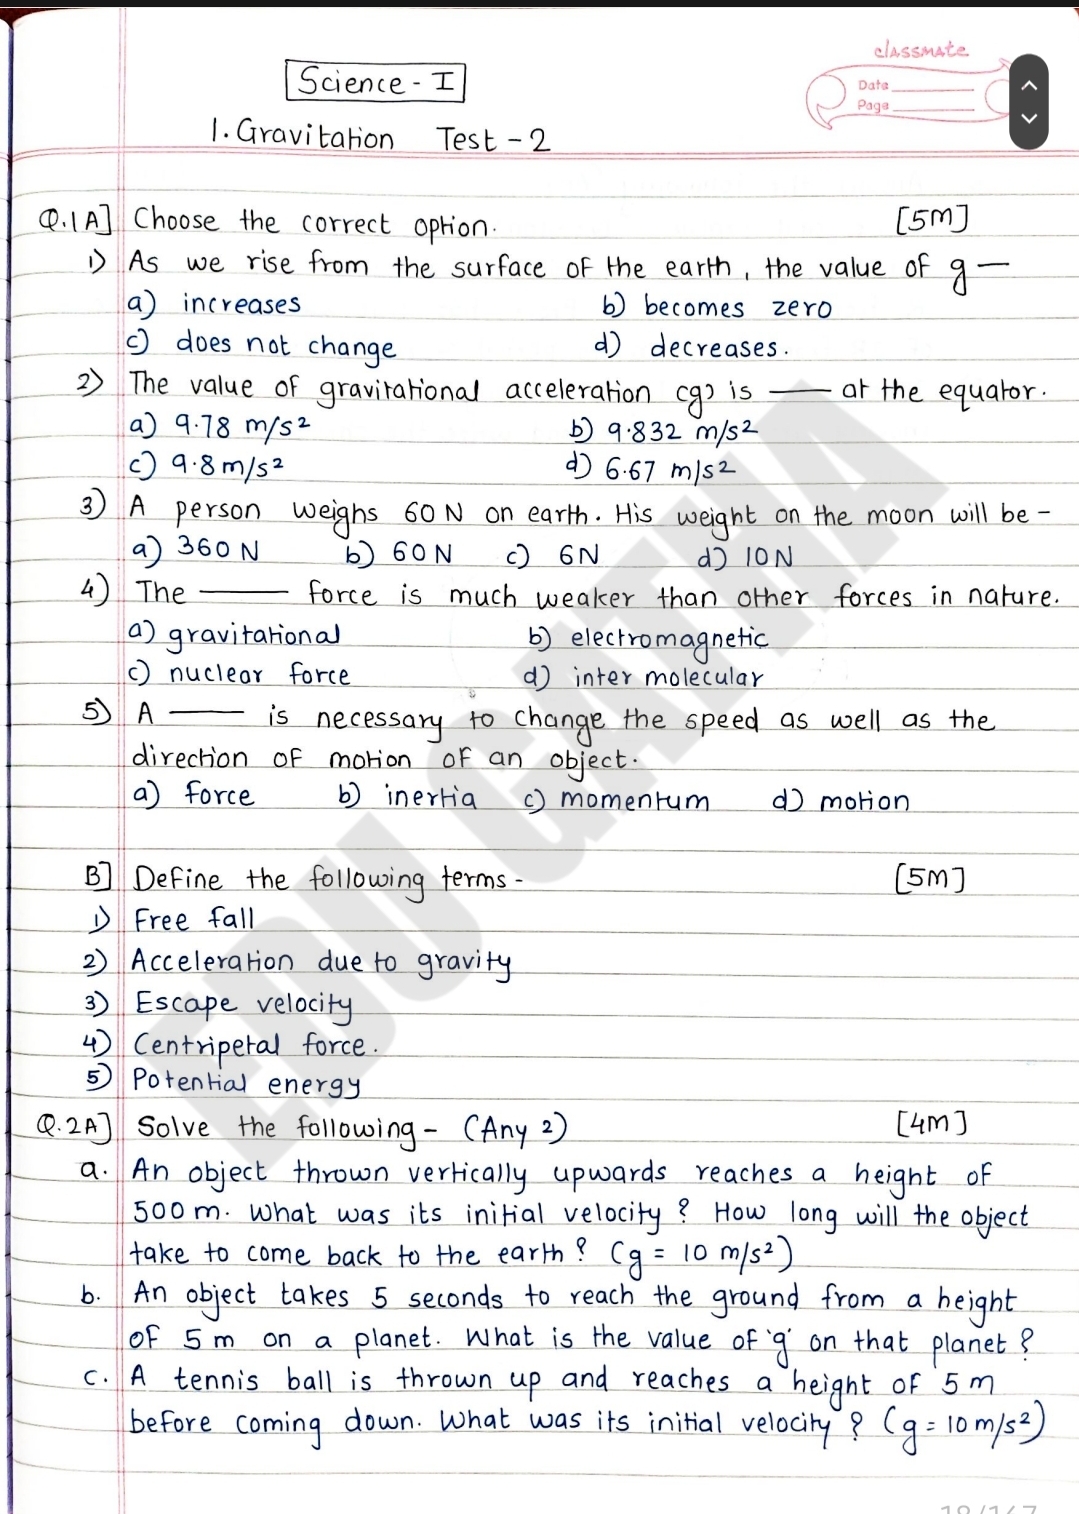 classmate
Date
Page
Science - I
1. Gravitation Test - 2
Q.1A] Choose the correct option. [5M]
1) As we rise from the surface of the earth, the value of g —
a) increases b) becomes zero
c) does not change d) decreases.
2) The value of gravitational acceleration (g) is —— at the equator.
a) 9.78 m/s² b) 9.832 m/s²
c) 9.8 m/s² d) 6.67 m/s²
3) A person weighs 60 N on earth. His weight on the moon will be -
a) 360 N b) 60 N c) 6N d) 10 N
4) The —— force is much weaker than other forces in nature.
a) gravitational b) electromagnetic
c) nuclear force d) inter molecular
5) A —— is necessary to change the speed as well as the
direction of motion of an object.
a) force b) inertia c) momentum d) motion
B] Define the following terms - [5M]
1) Free fall
2) Acceleration due to gravity
3) Escape velocity
4) Centripetal force.
5) Potential energy
Q.2A] Solve the following - (Any 2) [4M]
a. An object thrown vertically upwards reaches a height of
500 m. What was its initial velocity ? How long will the object
take to come back to the earth ? (g = 10 m/s²)
b. An object takes 5 seconds to reach the ground from a height
of 5 m on a planet. What is the value of 'g' on that planet ?
c. A tennis ball is thrown up and reaches a height of 5 m
before coming down. What was its initial velocity ? (g = 10 m/s²)
EDU GATHA